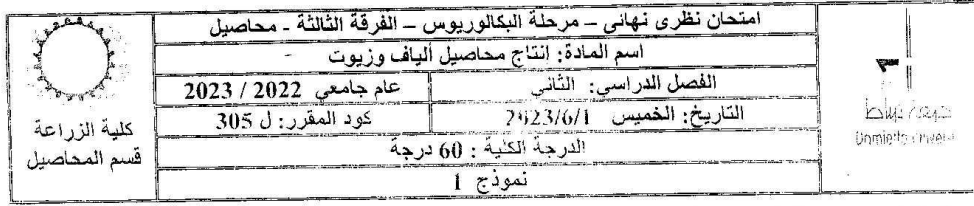 امتحان نظرى نهائى – مرحلة البكالوريوس – الفرقة الثالثة - محاصيل
اسم المادة: إنتاج محاصيل ألياف وزيوت -
الفصل الدراسي: الثاني
عام جامعي 2022 / 2023
التاريخ: الخميس 2023/6/1
كود المقرر: ل 305
الدرجة الكلية : 60 درجة
نموذج 1
كلية الزراعة
قسم المحاصيل